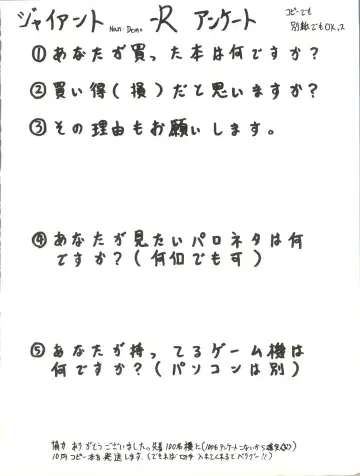 ジャイアント Nan-Demo -R アンケート
コピーでも
別紙でもOKっス
①あなたが買った本は何ですか?
②買い得(損)だと思いますか?
③その理由もお願いします。
④あなたが見たいパロネタは何
ですか?(何個でも可)
⑤あなたが持ってるゲーム機は
何ですか?(パソコンは別)
ありがとうございました。先着100名様に(100もアンケートこないから確実)
10円コピー本を発送します。(でも本は切手入れてくれるとベリグー!!)